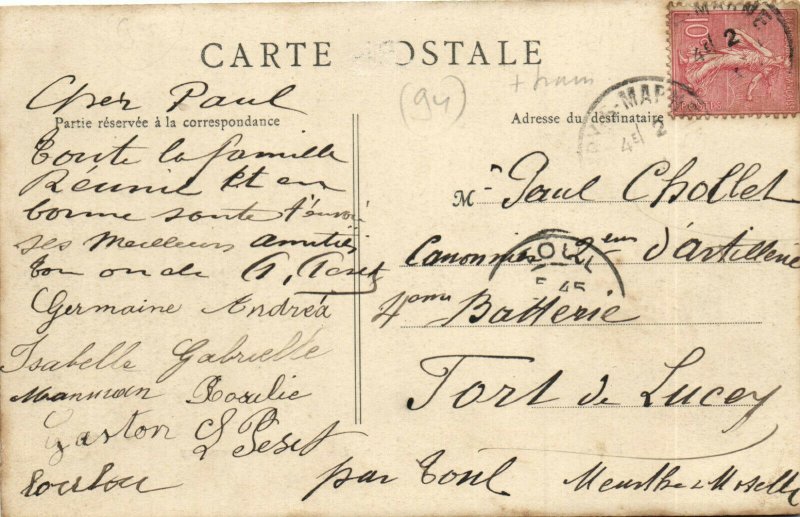 CARTE POSTALE
(94)
+ tram
Partie réservée à la correspondance
Adresse du destinataire
Cher Paul
Toute la famille
Réunie Et en
bonne sante t'envoie
ses Meilleurs amitiés
ton oncle G, Peset
Germaine Andréa
Isabelle Gabrielle
Manman Rosilie
Gaston L Peset
Loulou
Mr Paul Chollet
Canonnier 2eme d'artillerie
4eme Batterie
Fort de Lucey
par Toul Meurthe & Moselle
10
MARNE
2
TOUL